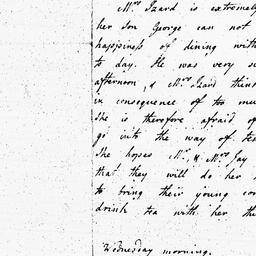 Mrs. Izard is extremely
her son George can not
happiness of dining with
to day. He was very
afternoon, & Mrs. Izard thin
in consequence of too mu
She is therefore afraid of
go into the way of
She hopes Mr. & Mrs. Jay
that they will do her
to bring their young
drink tea with her th
Wednesday morning.